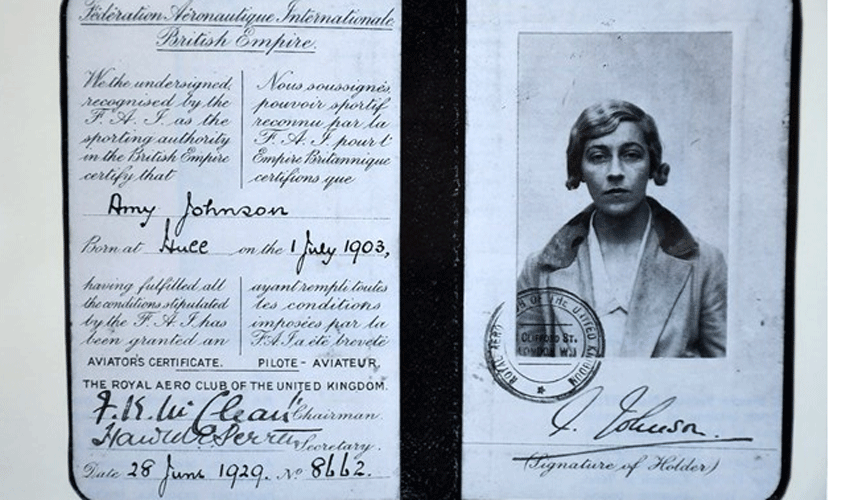 Fédération Aéronautique Internationale
British Empire.
We the undersigned,
recognised by the
F. A. I. as the
sporting authority
in the British Empire
certify that
Nous soussignés,
pouvoir sportif
reconnu par la
F. A. I. pour l'
Empire Britannique
certifions que
Amy Johnson
Born at Hull on the 1 July 1903,
having fulfilled all
the conditions stipulated
by the F. A. I. has
been granted an
ayant remplie toutes
les conditions
imposées par la
F. A. I. a été breveté
AVIATOR'S CERTIFICATE. PILOTE - AVIATEUR,
THE ROYAL AERO CLUB OF THE UNITED KINGDOM.
Chairman.
Secretary.
Date 28 June 1929. No 8662.
ROYAL AERO CLUB OF THE UNITED KINGDOM
CLIFFORD ST.
LONDON W.1
A. Johnson.
(Signature of Holder)